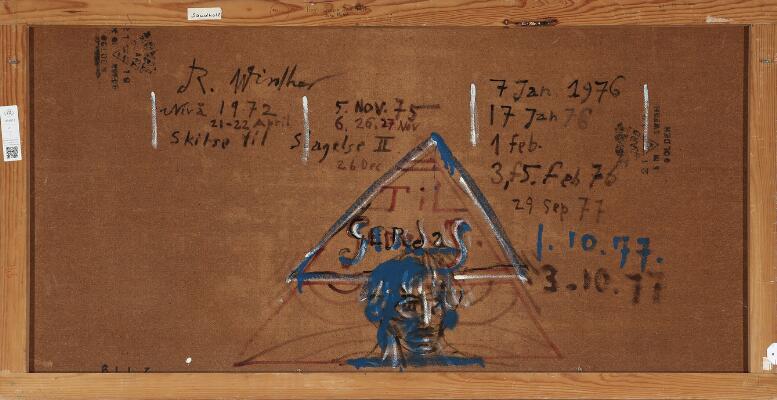 Sandholt
R. Winther
Nivå 1972
21-22 April
Skitse til Slagelse II
5. Nov. 75
6. 26. 27 Nov
26 Dec
7 Jan. 1976
17 Jan 76
1 feb.
3, 5. Feb 76
29 Sep 77
1. 10. 77.
3-10.77
Til
GERDAS.
GOLDEN